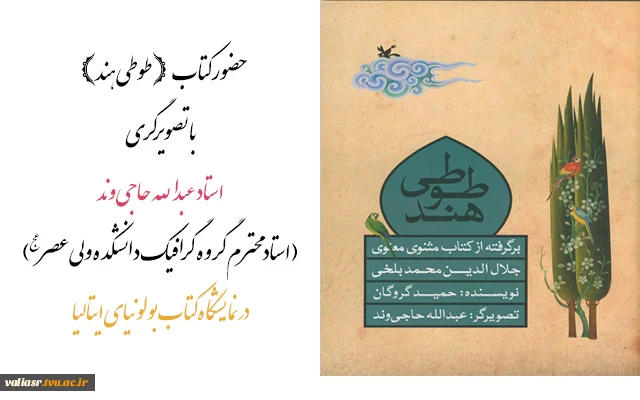 حضور کتاب ﴿طوطی هند﴾
با تصویرگری
استاد عبدالله حاجی‌وند
(استاد محترم گروه گرافیک دانشکده ولی عصر عج)
در نمایشگاه کتاب بولونیای ایتالیا
طوطی
هند
برگرفته از کتاب مثنوی معنوی
جلال الدین محمد بلخی
نویسنده: حمید گروگان
تصویرگر: عبدالله حاجی‌وند
valiasr.tvu.ac.ir